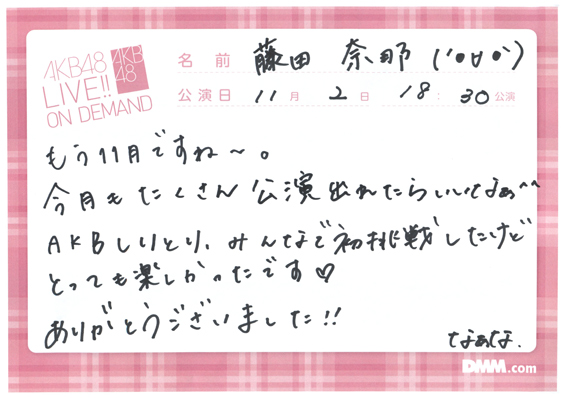 AKB48
LIVE!!
ON DEMAND
AKB
48
名前 藤田 奈那 ('•ㅂ•')
公演日 11月 2日 18:30公演
もう11月ですね〜。
今月もたくさん公演出れたらいいなぁ^^
AKBしりとり、みんなで初挑戦したけど
とっても楽しかったです♡
ありがとうございました!!
なぁな.
DMM.com